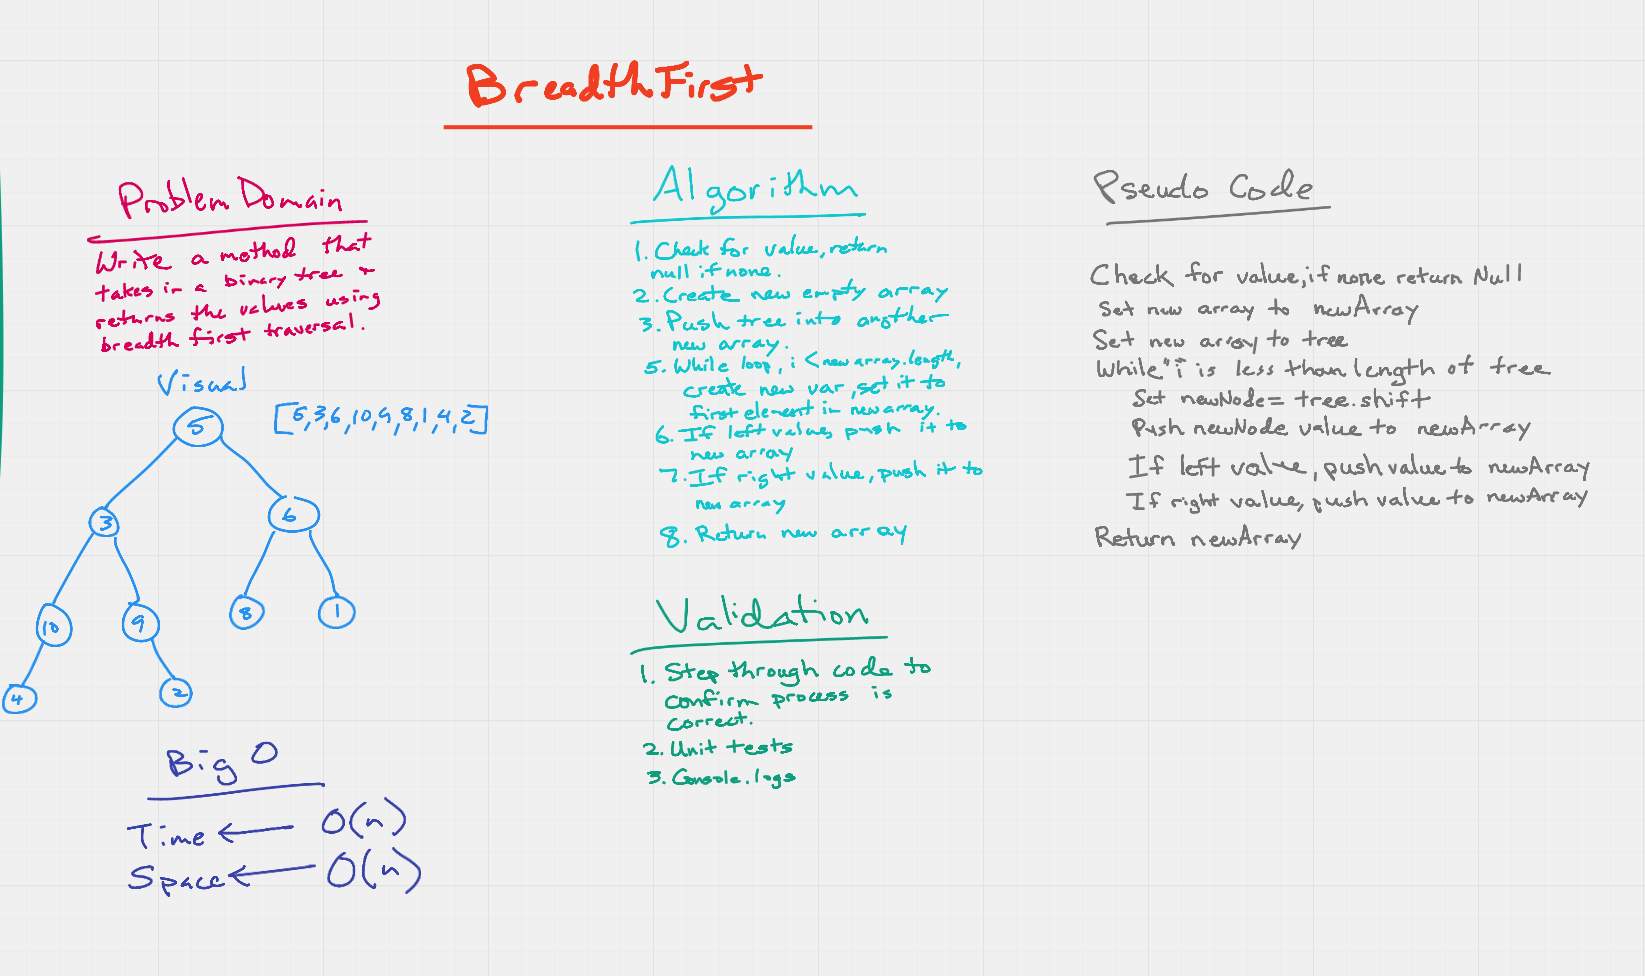 BreadthFirst
Problem Domain
Write a method that
takes in a binary tree +
returns the values using
breadth first traversal.
Visual
[5,3,6,10,9,8,1,4,2]
5
3
6
10
9
8
1
4
2
Big O
Time ← O(n)
Space ← O(n)
Algorithm
1. Check for value, return
null if none.
2. Create new empty array
3. Push tree into another
new array.
5. While loop, i < new array.length,
create new var, set it to
first element in new array.
6. If left value, push it to
new array
7. If right value, push it to
new array
8. Return new array
Validation
1. Step through code to
confirm process is
correct.
2. Unit tests
3. Console.logs
Pseudo Code
Check for value, if none return Null
Set new array to newArray
Set new array to tree
While "i" is less than length of tree
Set newNode = tree.shift
Push newNode value to newArray
If left value, push value to newArray
If right value, push value to newArray
Return newArray